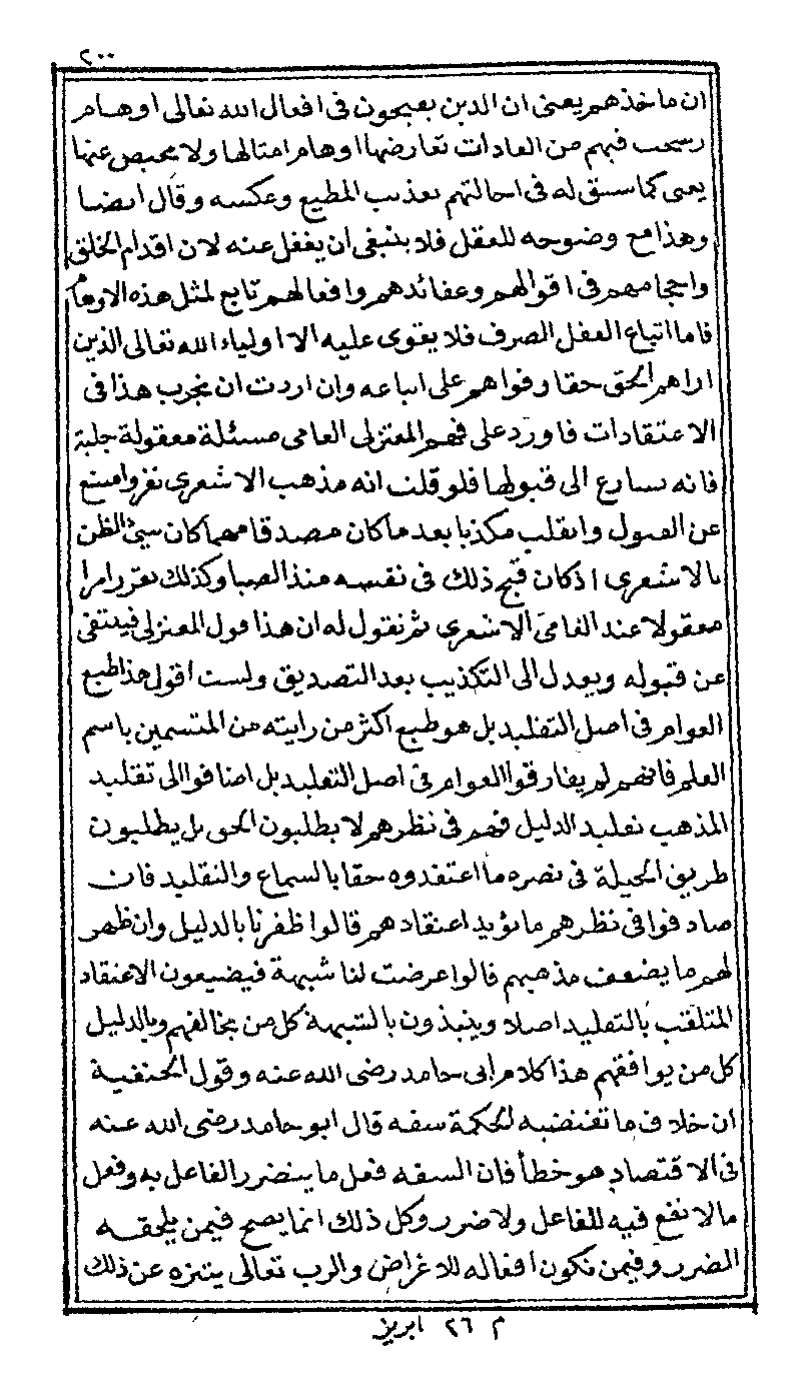 ٢٠٠
ان ماخذهم يعنى ان الذين يقبحون فى افعال الله تعالى اوهام
رسخت فيهم من العادات تعارضها اوهام امثالها ولا محيص عنها
يعنى كما سبق له فى احالتهم تعذيب المطيع وعكسه وقال ايضا
وهذا مع وضوحه للعقل فلا ينبغى ان يغفل عنه لان اقدام الخلق
واحجامهم فى اقوالهم وعقائدهم وافعالهم تابع لمثل هذه الاوهام
فاما اتباع العقل الصرف فلا يقوى عليه الا اولياء الله تعالى الذين
اراهم الحق حقا وقواهم على اتباعه وان اردت ان تجرب هذا فى
الاعتقادات فاورد على فهم المعتزلى العامى مسئلة معقولة جلية
فانه يسارع الى قبولها فلو قلت انه مذهب الاشعرى نفر وامتنع
عن القبول وانقلب مكذبا بعد ما كان مصدقا مهما كان سيئ الظن
بالاشعرى اذ كان قبح ذلك فى نفسه منذ الصبا وكذلك تقرر امرا
معقولا عند العامى الاشعرى ثم تقول له ان هذا قول المعتزلى فينتفى
عن قبوله ويعدل الى التكذيب بعد التصديق ولست اقول هذا طبع
العوام فى اصل التقليد بل هو طبع اكثر من رايته من المتسمين باسم
العلم فانهم لم يفارقوا العوام فى اصل التقليد بل اضافوا الى تقليد
المذهب تقليد الدليل فهم فى نظرهم لا يطلبون الحق بل يطلبون
طريق الحيلة فى نصره ما اعتقدوه حقا بالسماع والتقليد فان
صادفوا فى نظرهم ما يؤيد اعتقادهم قالوا ظفرنا بالدليل وان ظهر
لهم ما يضعف مذهبهم قالوا عرضت لنا شبهة فيضيعون الاعتقاد
المتلقب بالتقليد اصلا وينبذون بالشبهة كل من يخالفهم وبالدليل
كل من يوافقهم هذا كلام ابى حامد رضى الله عنه وقول الحنفية
ان خلاف ما تقتضيه الحكمة سفه قال ابو حامد رضى الله عنه
فى الاقتصاد هو خطأ فان السفه فعل ما يتضرر الفاعل به وفعل
ما لا نفع فيه للفاعل ولا ضرر وكل ذلك انما يصح فيمن يلحقه
الضرر وفيمن تكون افعاله للاغراض والرب تعالى يتنزه عن ذلك
م ٢٦ ابريز